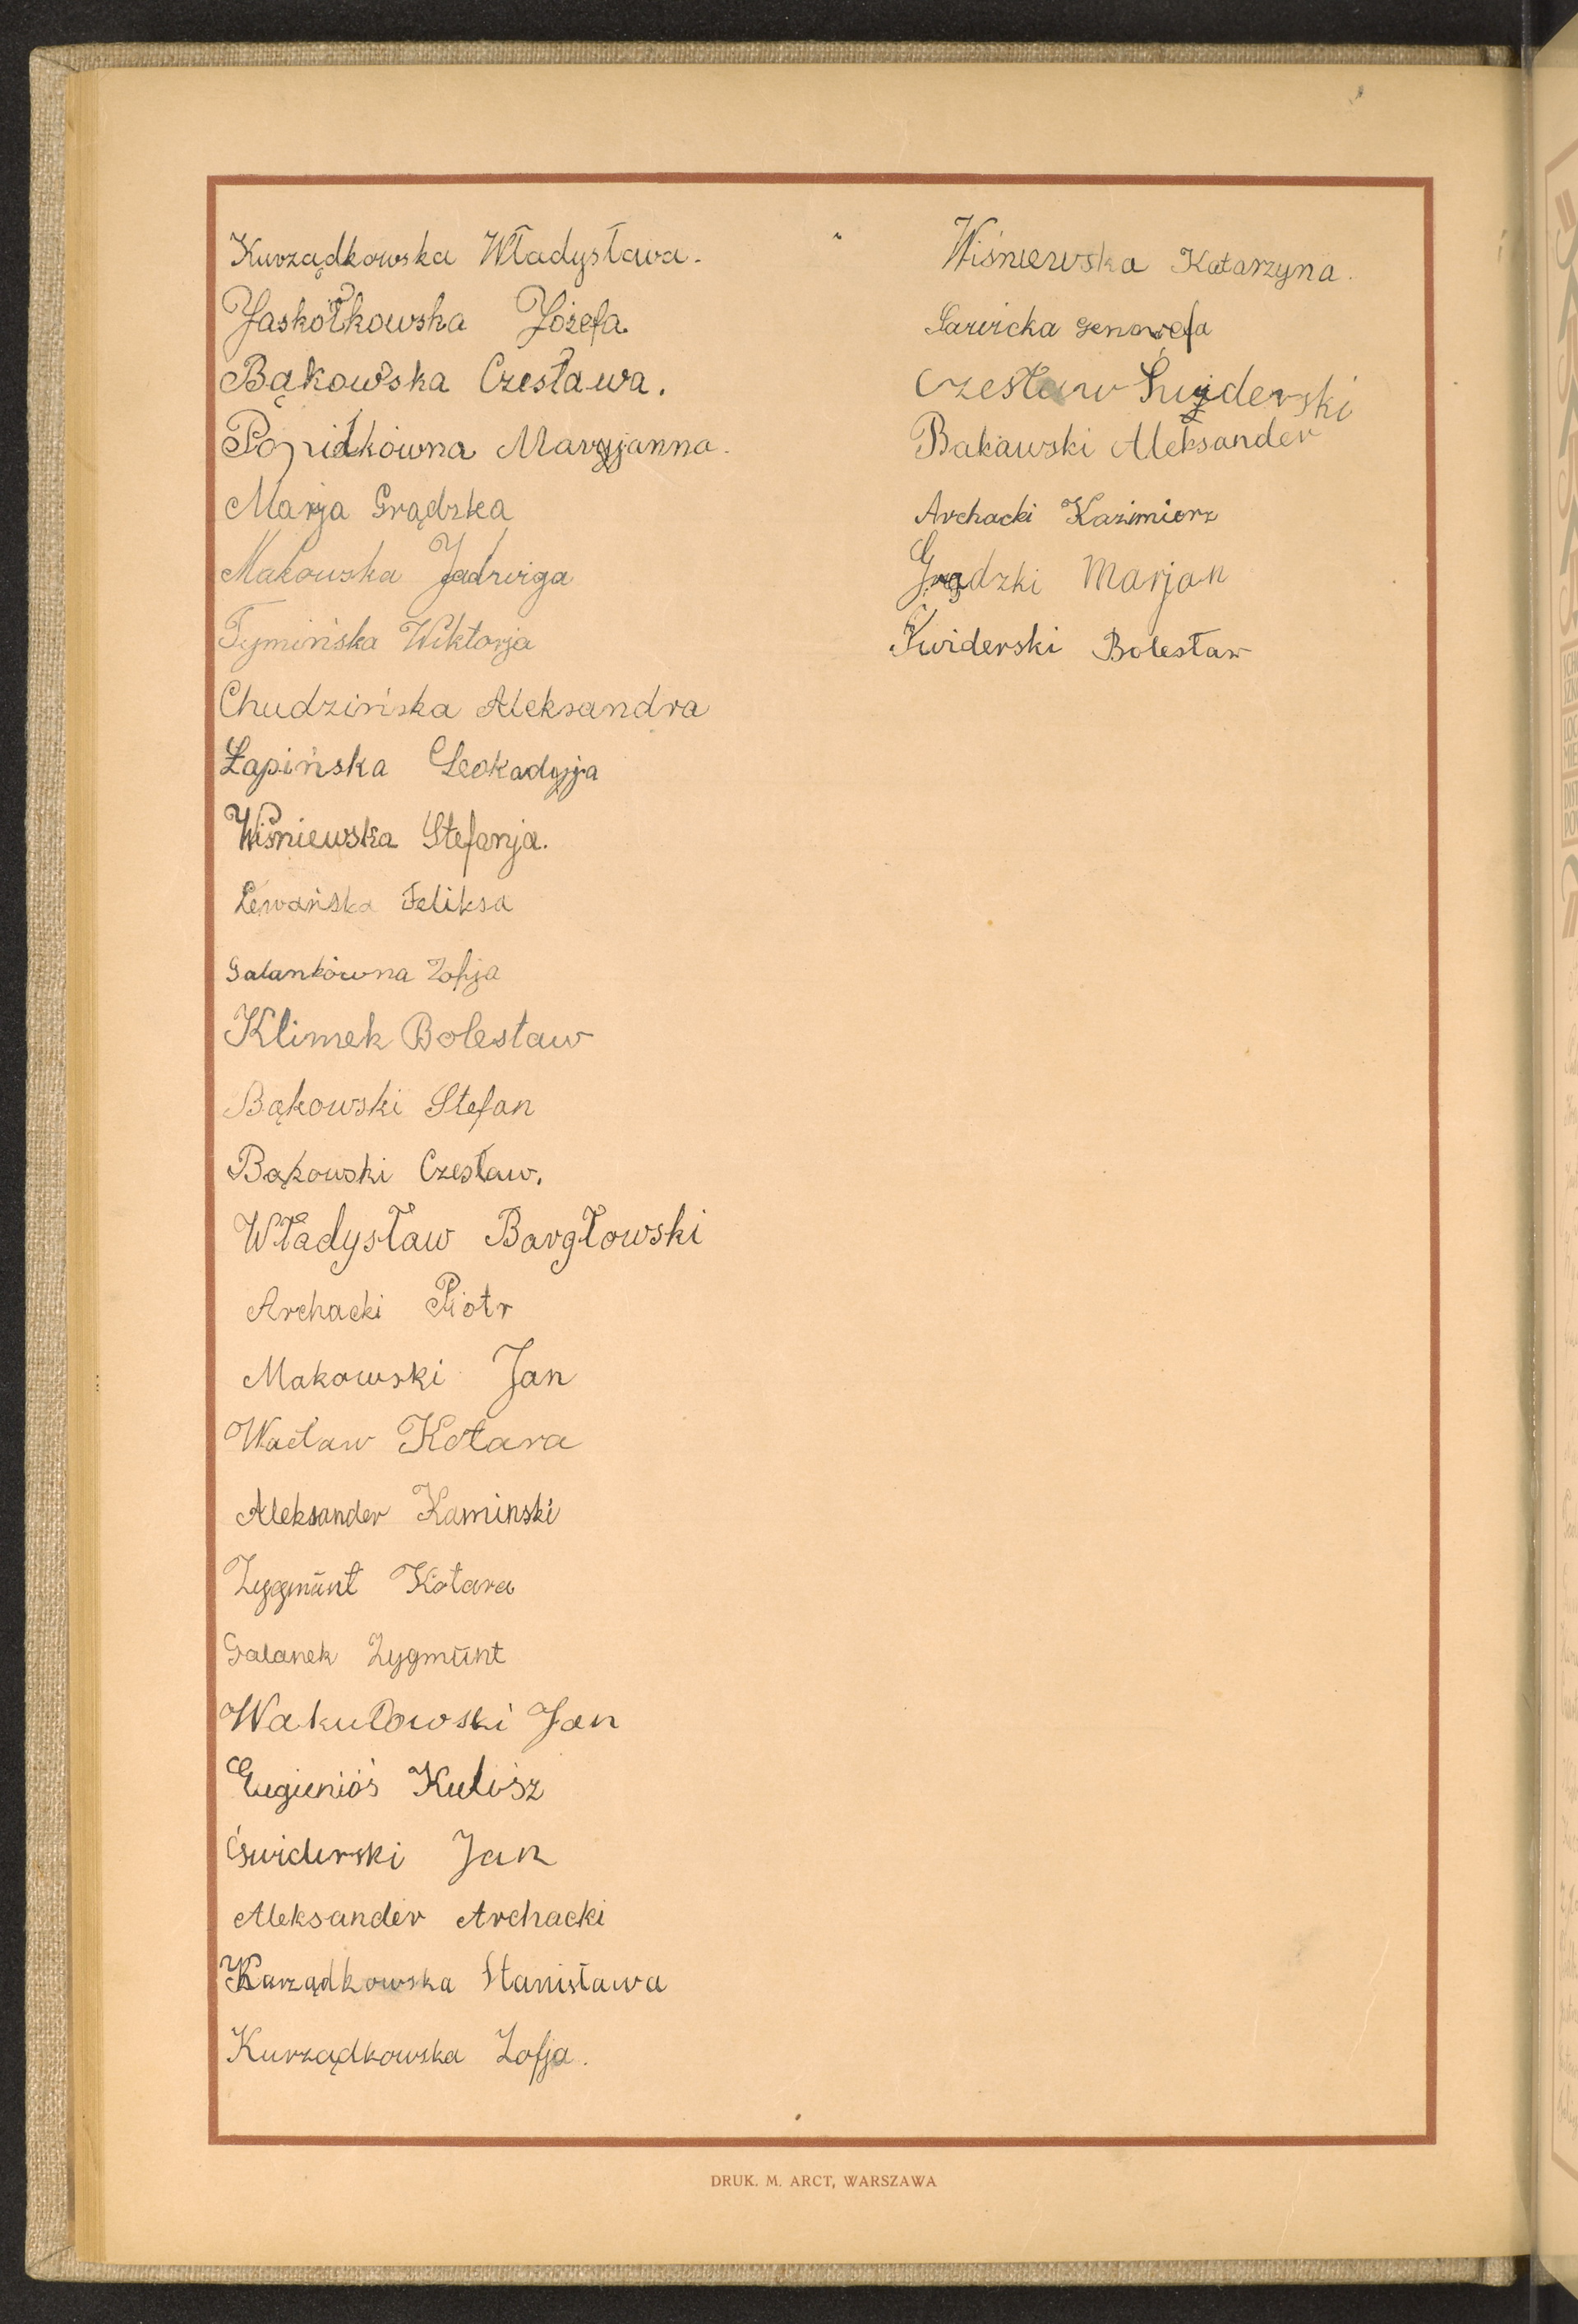 Kurządkowska Władysława.
Jaskółkowska Józefa.
Bąkowska Czesława.
Popiołkówna Maryjanna.
Marja Grądzka
Makowska Jadwiga
Tymińska Wiktorja
Chudzińska Aleksandra
Łapińska Leokadyja
Wiśniewska Stefanja.
Lewańska Feliksa
Galankówna Zofja
Klimek Bolesław
Bąkowski Stefan
Bąkowski Czesław.
Władysław Bargłowski
Archacki Piotr
Makowski Jan
Wacław Kotara
Aleksander Kaminski
Zygmunt Kotara
Galanek Zygmunt
Wakułowski Jan
Eugieniós Kulisz
Świderski Jan
Aleksander Archacki
Kurządkowska Stanisława
Kurządkowska Zofja.
Wiśniewska Katarzyna.
Sawicka Genowefa
Czesław Świderski
Bakawski Aleksander
Archacki Kazimierz
Grądzki Marjan
Świderski Bolesław
DRUK. M. ARCT, WARSZAWA